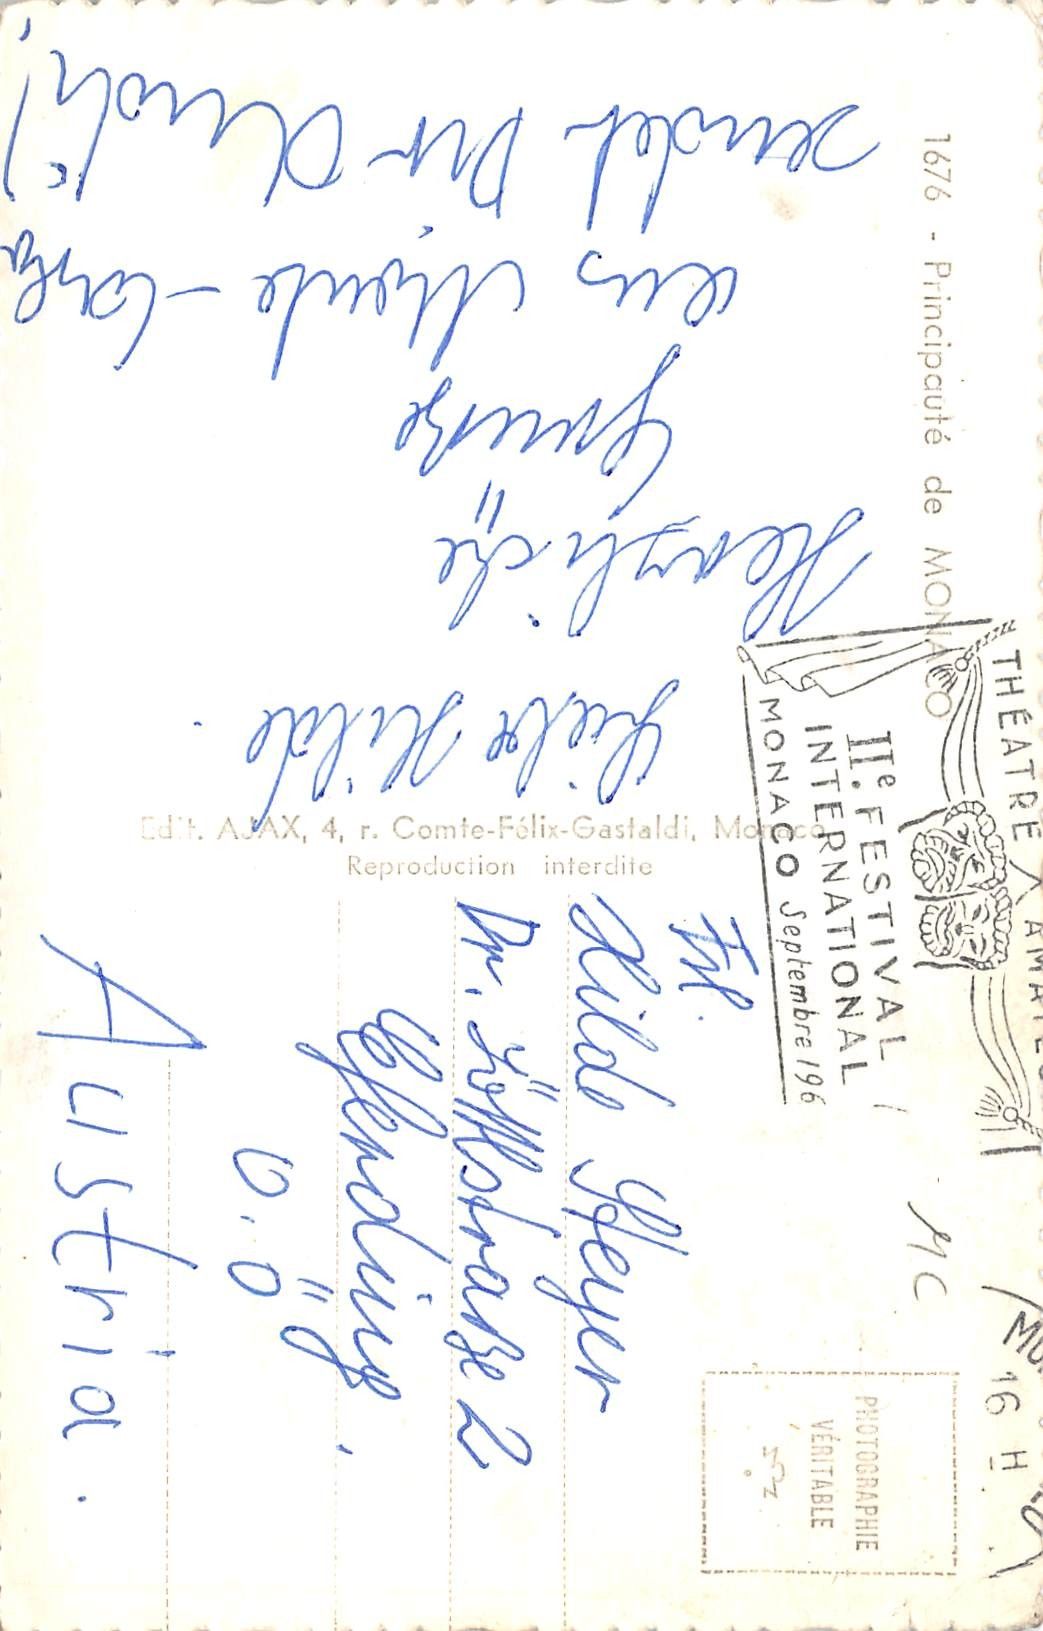 1676 - Principauté de MONACO
Liebe Hilde
Herzliche
Grüsse
aus Monte-Carlo
sendet Dir
Edit. AJAX, 4, r. Comte-Félix-Gastaldi, Monaco
Reproduction interdite
THÉATRE AMATEUR
IIe. FESTIVAL
INTERNATIONAL
MONACO Septembre 196
MC
16 H
PHOTOGRAPHIE
VÉRITABLE
Frl.
Hilde
Dr. Löfflstraße 2
Eferding,
O.Ö
Austria.